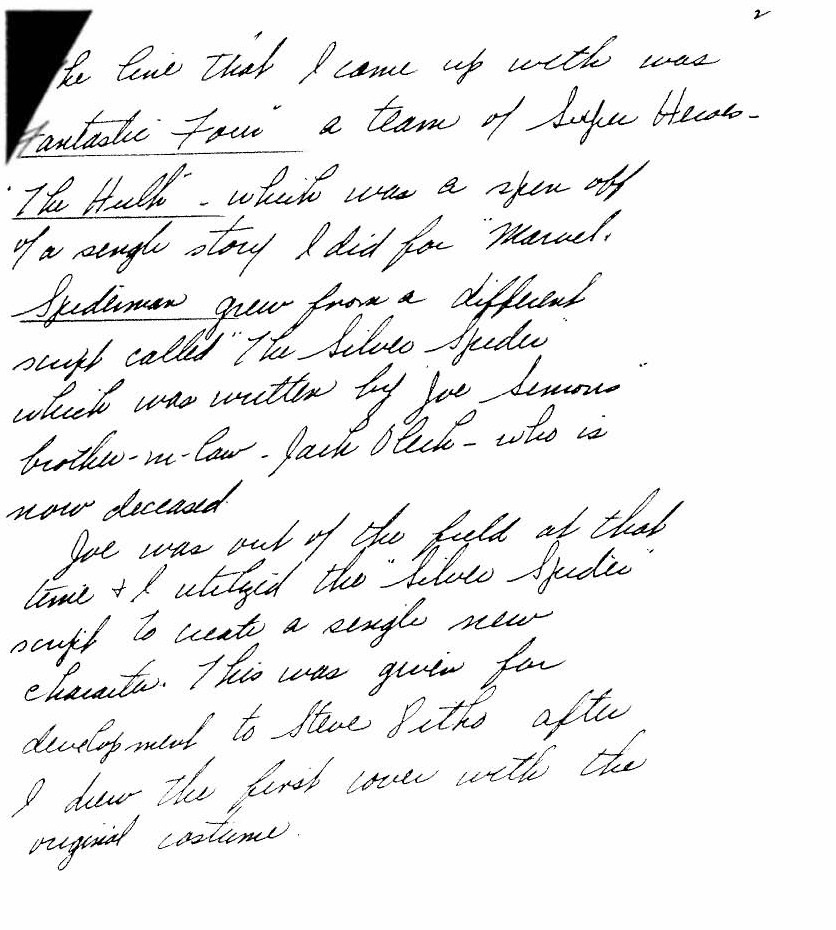 2
he line that I came up with was
Fantastic Four" a team of Super Heroes -
"The Hulk" - which was a spin off
of a single story I did for "Marvel.
Spiderman grew from a different
script called "The Silver Spider"
which was written by "Joe Simons"
brother-in-law - Jack Oleck - who is
now deceased.
Joe was out of the field at that
time & I utilized the "Silver Spider"
script to create a single new
character. This was given for
development to Steve Ditko after
I drew the first cover with the
original costume.